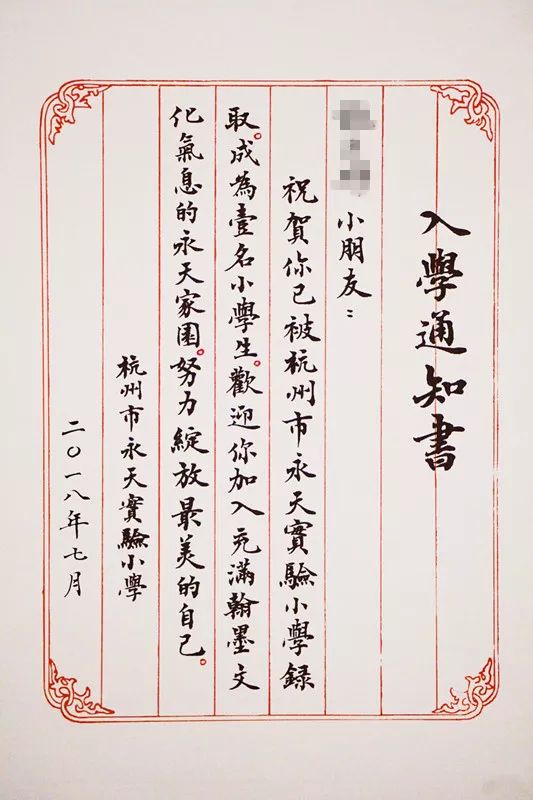 入學通知書
小朋友：
祝賀你已被杭州市永天實驗小學録
取。成為壹名小學生。歡迎你加入充滿翰墨文
化氣息的永天家園。努力綻放最美的自己。
杭州市永天實驗小學
二〇一八年七月